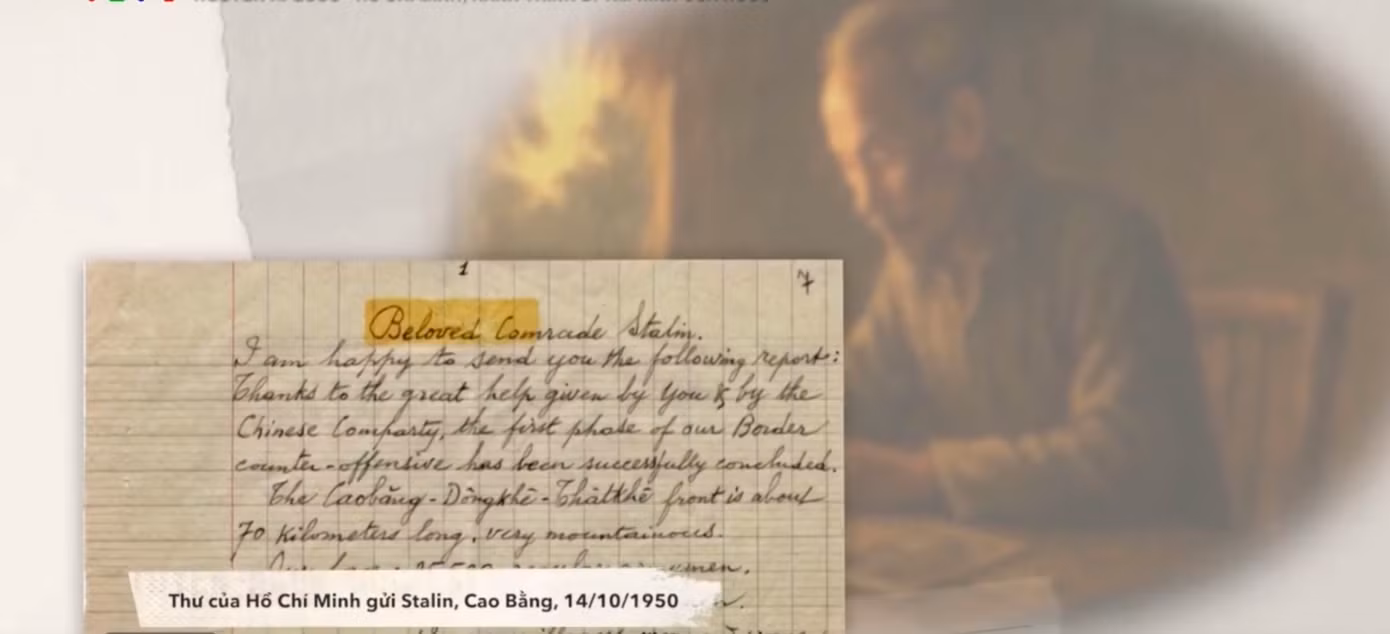 1
7
Beloved Comrade Stalin.
I am happy to send you the following report:
Thanks to the great help given by You & by the
Chinese Comparty, the first phase of our Border
counter-offensive has been successfully concluded.
The Caobăng-Dôngkhê-Thâtkhê front is about
70 Kilometers long, very mountainous.
Thư của Hồ Chí Minh gửi Stalin, Cao Bằng, 14/10/1950